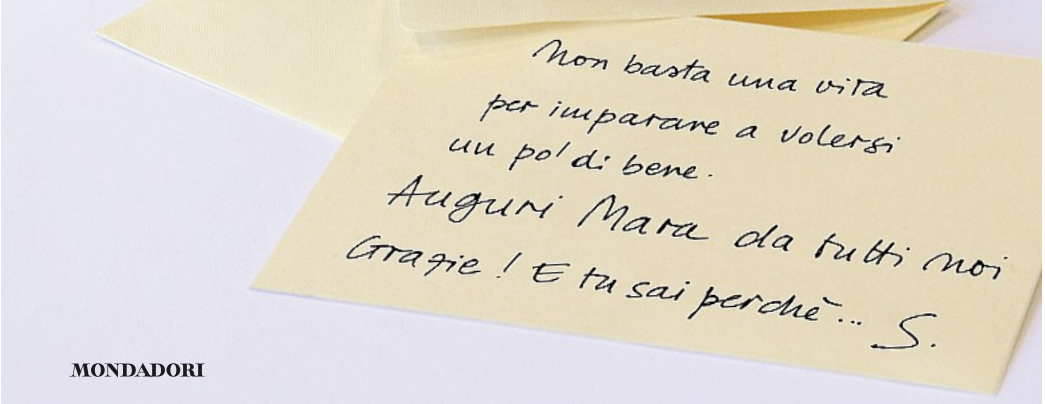 Non basta una vita
per imparare a volersi
un po' di bene.
Auguri Mara da tutti noi
Grazie! E tu sai perchè... S.
MONDADORI